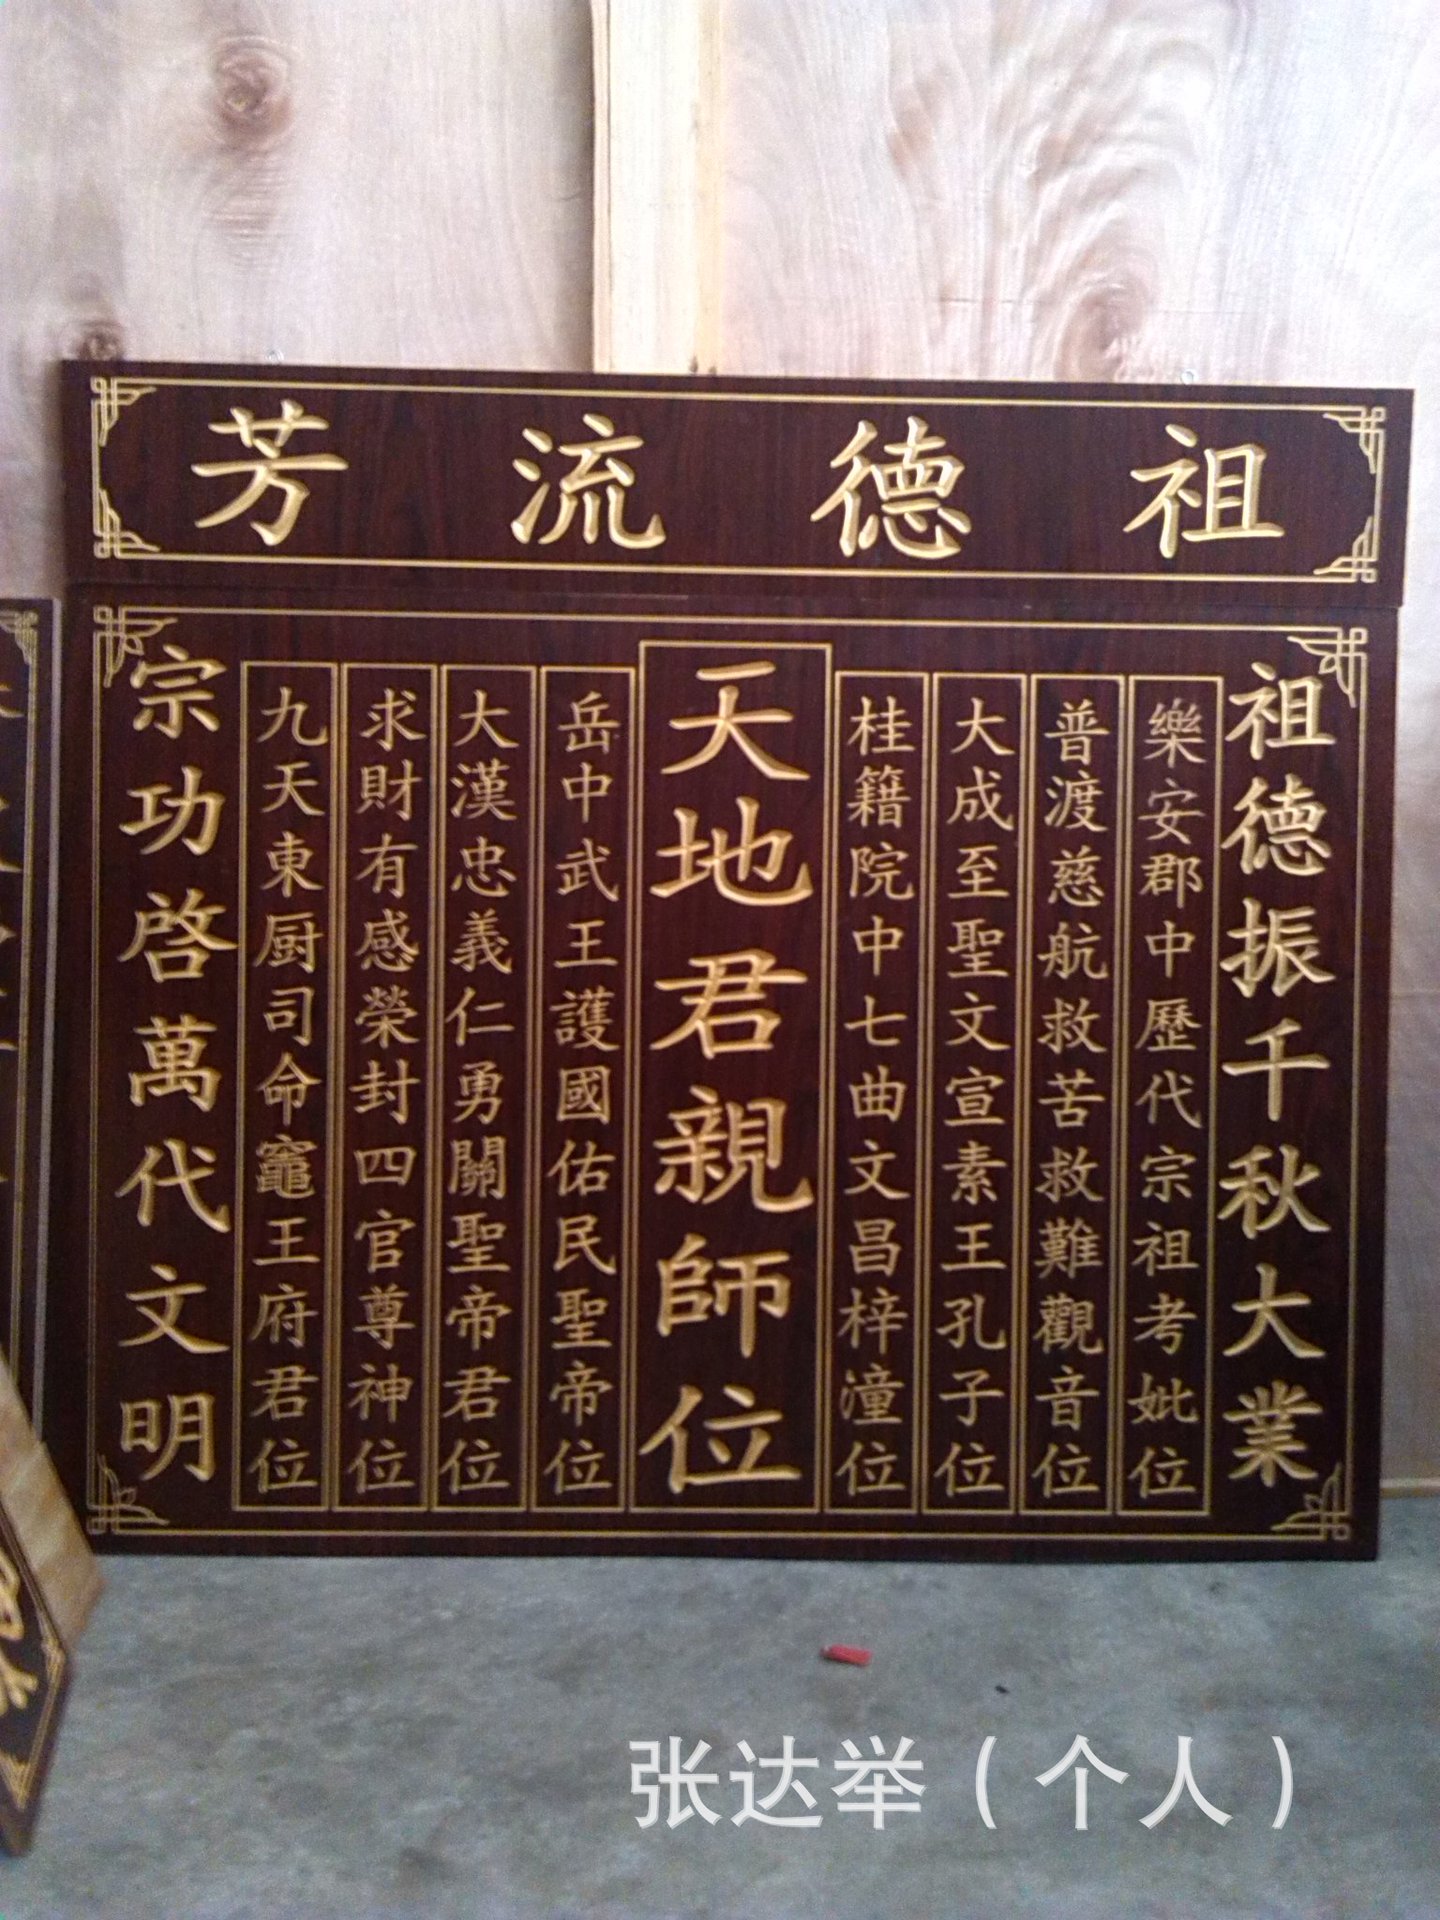 祖德流芳
祖德振千秋大業
樂安郡中歷代宗祖考妣位
普渡慈航救苦救難觀音位
大成至聖文宣素王孔子位
桂籍院中七曲文昌梓潼位
天地君親師位
岳中武王護國佑民聖帝位
大漢忠義仁勇關聖帝君位
求財有感榮封四官尊神位
九天東厨司命竈王府君位
宗功啓萬代文明
张达举（个人）